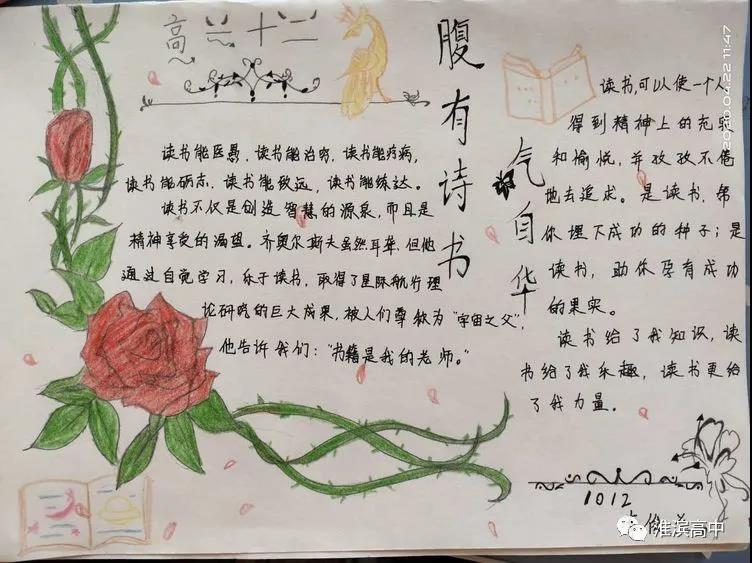 高 十二
腹有诗书
气自华
读书能医愚,读书能治穷,读书能疗病,
读书能砺志,读书能致远,读书能练达。
读书不仅是创造智慧的源泉,而且是
精神享受的渴望。齐奥尔斯夫虽然耳聋,但他
通过自觉学习,乐于读书,取得了星际航行理
论研究的巨大成果,被人们尊称为“宇宙之父”,
他告诉我们:“书籍是我的老师。”
读书,可以使一个人
得到精神上的充实
和愉悦,并孜孜不倦
地去追求。是读书,帮
你埋下成功的种子;是
读书,助你孕有成功
的果实。
读书给了我知识,读
书给了我乐趣,读书更给
了我力量。
1012
2020.04.22 11:47
淮滨高中